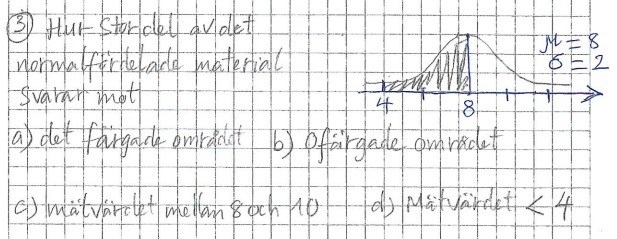 ③ Hur stor del av det
normalfördelade material
svarar mot
μ = 8
σ = 2
4
8
a) det färgade området b) Ofärgade området
c) mätvärdet mellan 8 och 10 d) Mätvärdet < 4